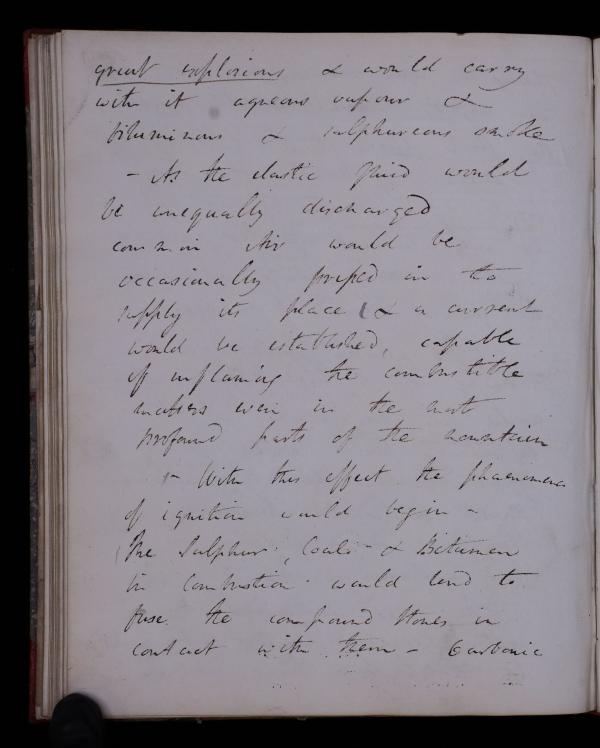 great explosions & would carry
with it aqueous vapour &
bituminous & sulphureous smoke
- As the elastic fluid would
be unequally discharged
common Air would be
occasionally pressed in to
supply its place & a current
would be established, capable
of inflaming the combustible
matters even in the most
profound parts of the mountain
- With this effect the phaenomena
of ignition would begin -
The Sulphur, Coals & Bitumen
in combustion would tend to
fuse the compound stones in
contact with them - Carbonic